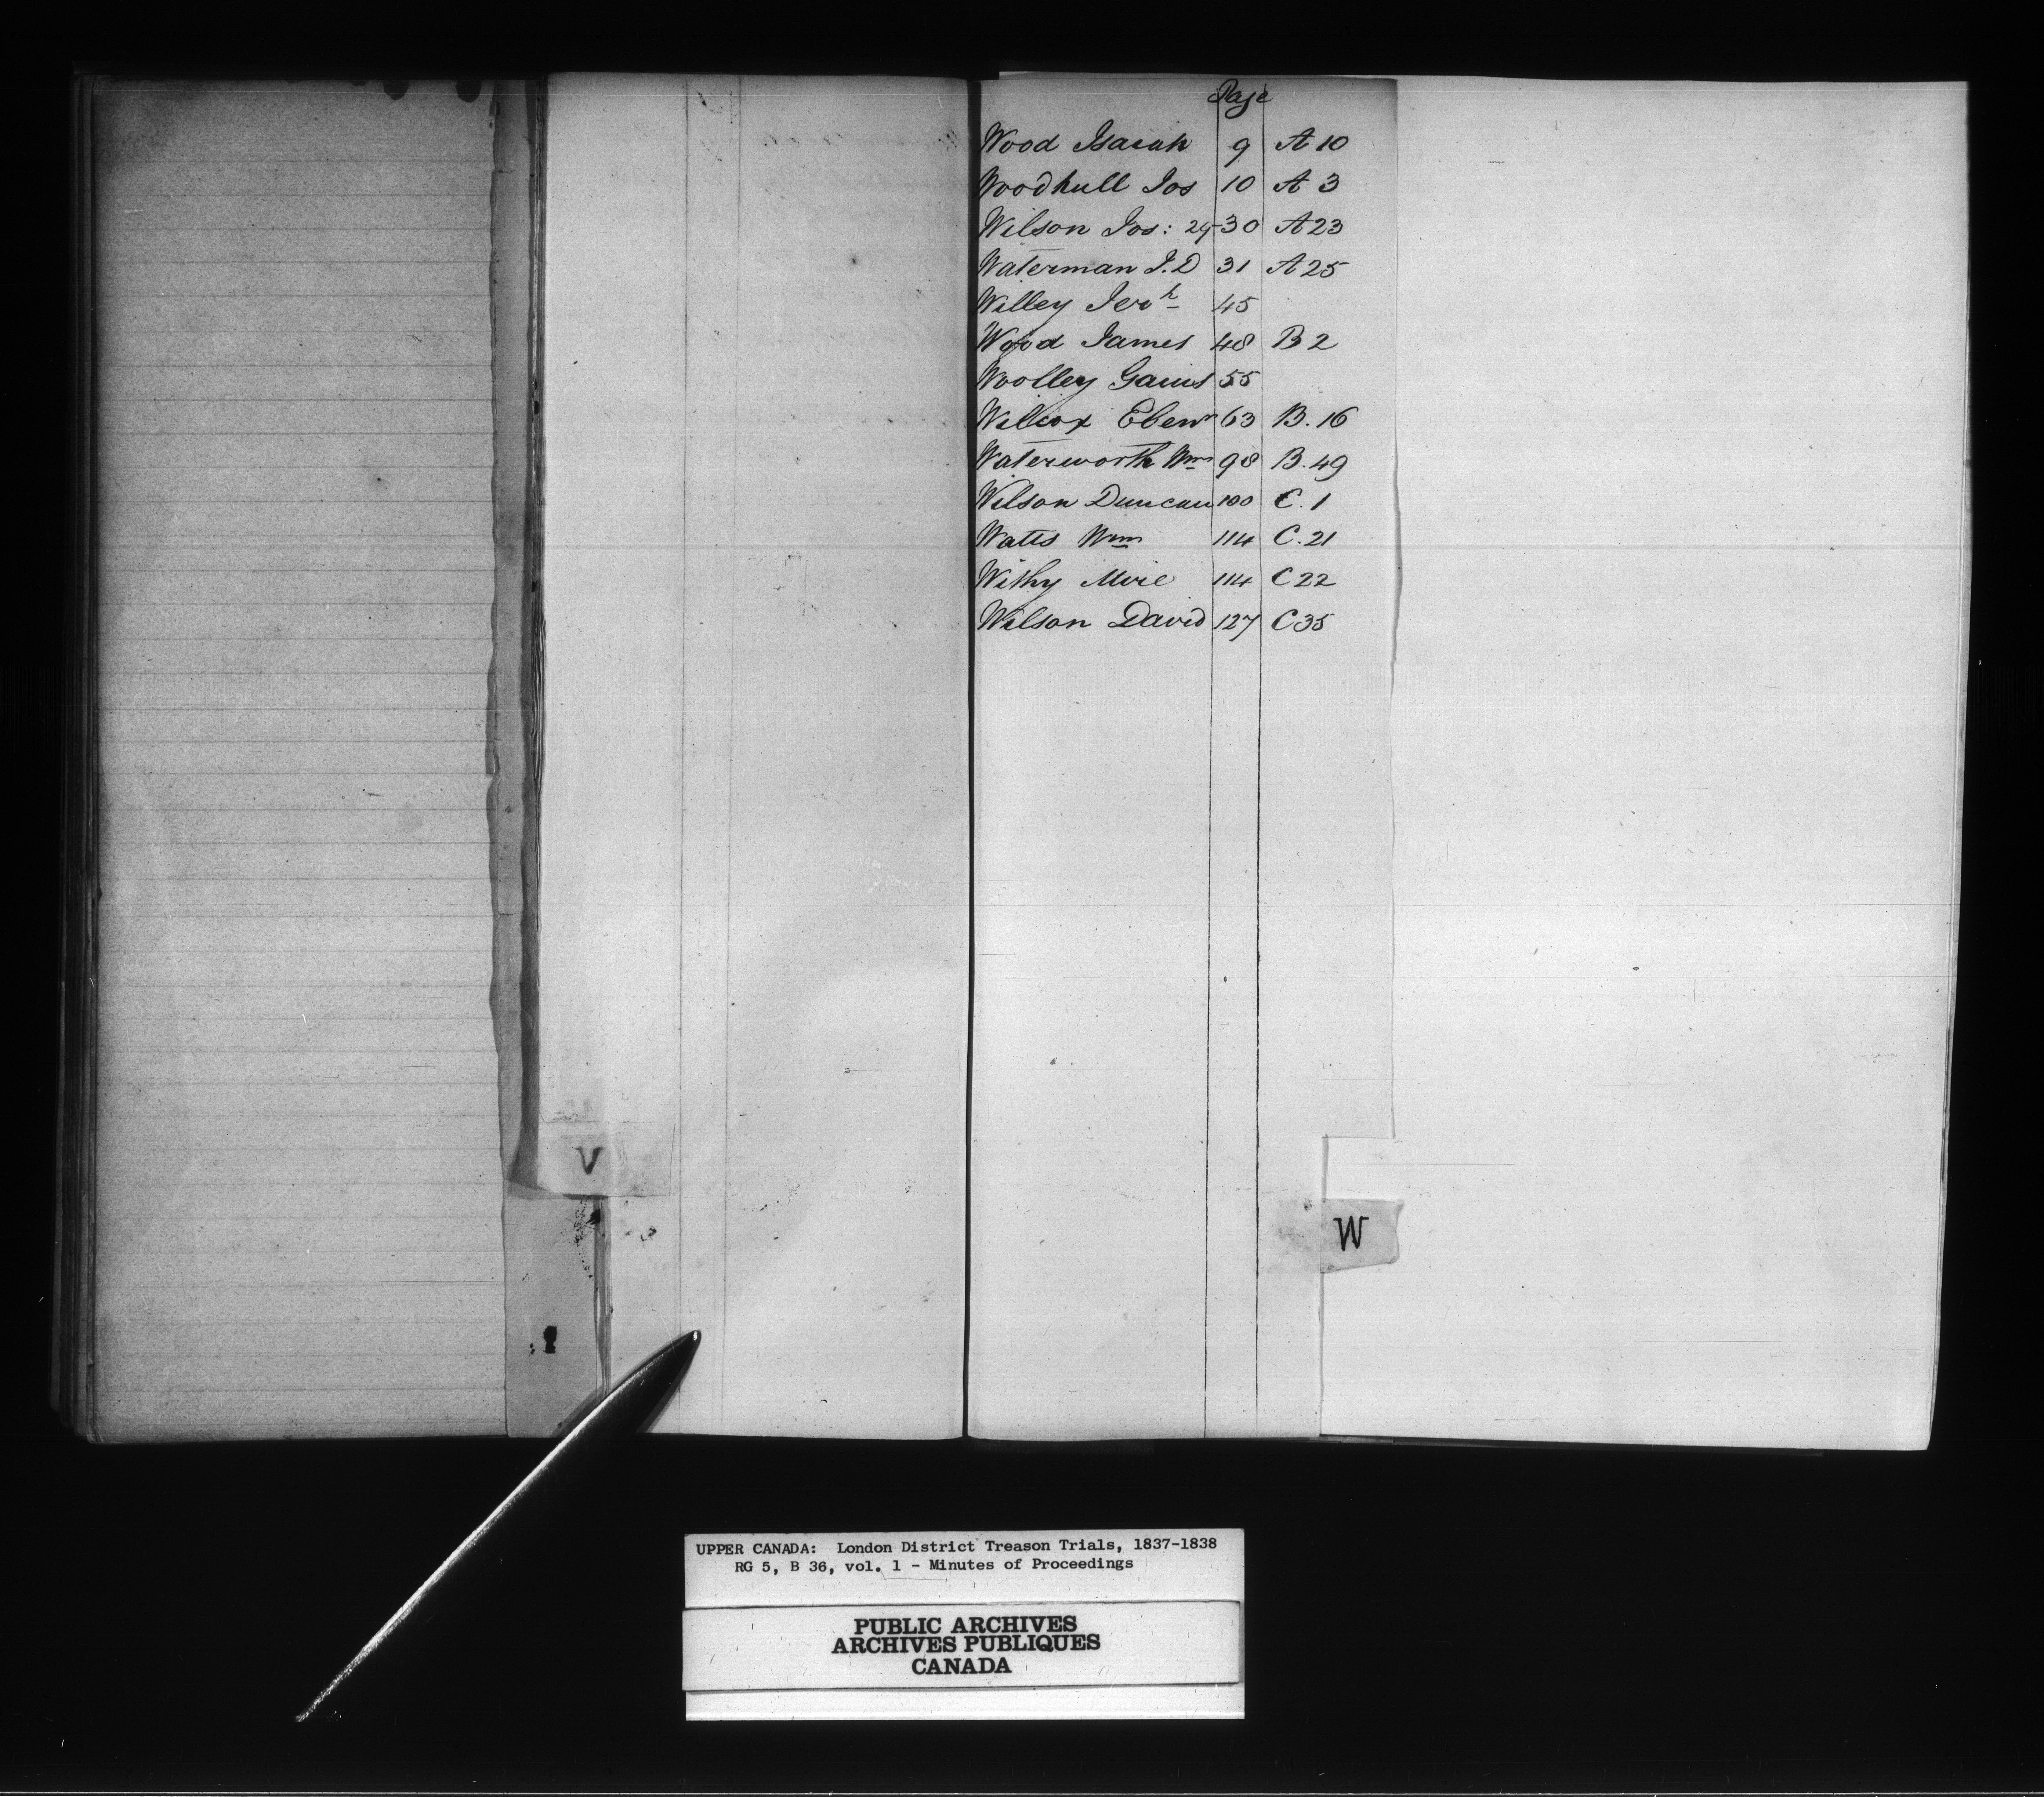 V
Page
Wood Isaiah 9 A 10
Woodhull Jos 10 A 3
Wilson Jos: 29-30 A 23
Waterman J.D 31 A 25
Willey Jerh 45
Wood James 48 B 2
Woolley Gaius 55
Wilcox Ebenr 63 B. 16
Waterworth Wm 98 B. 49
Wilson Duncan 100 C. 1
Watts Wm 114 C. 21
Withy 114 C 22
Wilson David 127 C 35
W
UPPER CANADA: London District Treason Trials, 1837-1838
RG 5, B 36, vol. 1 - Minutes of Proceedings
PUBLIC ARCHIVES
ARCHIVES PUBLIQUES
CANADA